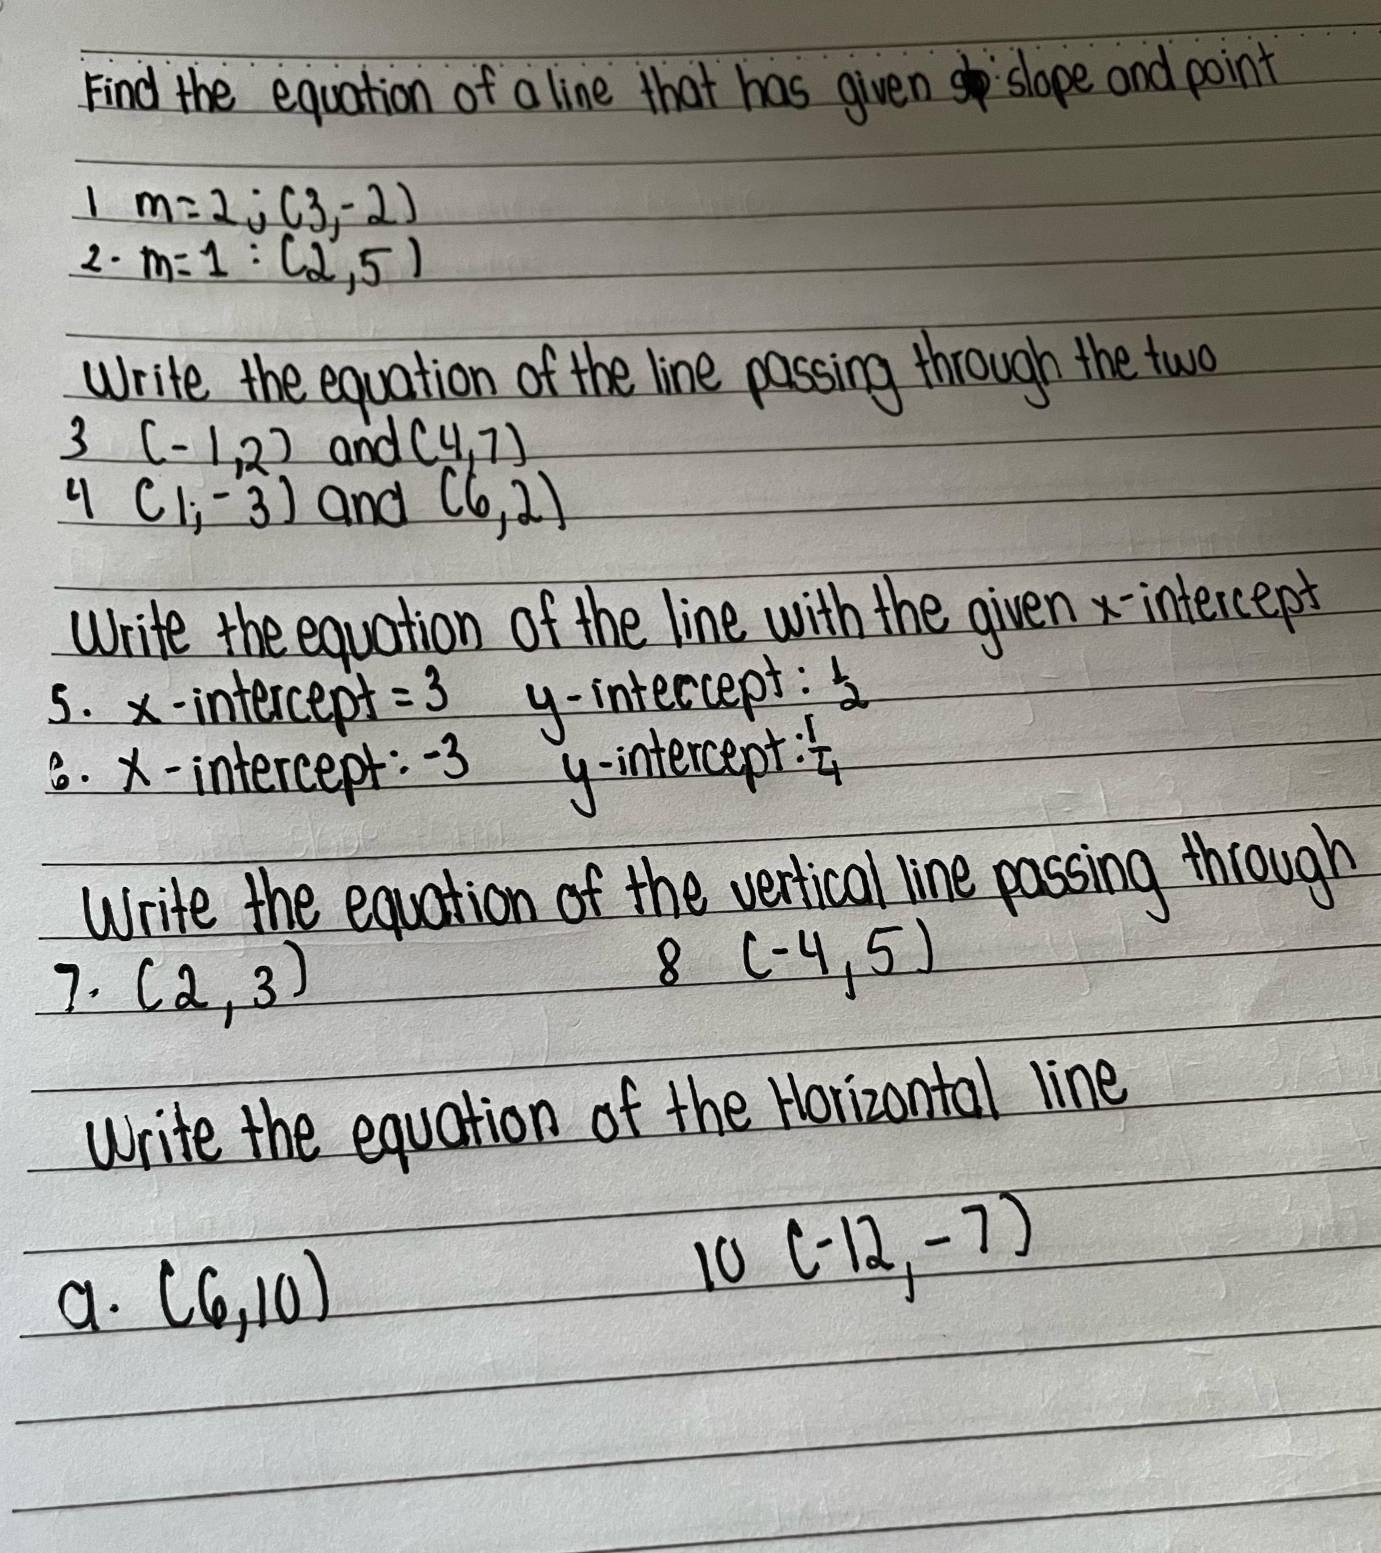 Find the equation of a line that has given slope and point
1 m=2; (3,-2)
2. m=1 : (2,5)
Write the equation of the line passing through the two
3 (-1,2) and (4,7)
4 (1,-3) and (6,2)
Write the equation of the line with the given x-intercept
5. x-intercept = 3 y-intercept: 1/2
6. x-intercept: -3 y-intercept: 1/4
Write the equation of the vertical line passing through
7. (2,3) 8 (-4,5)
Write the equation of the Horizontal line
9. (6,10) 10 (-12,-7)